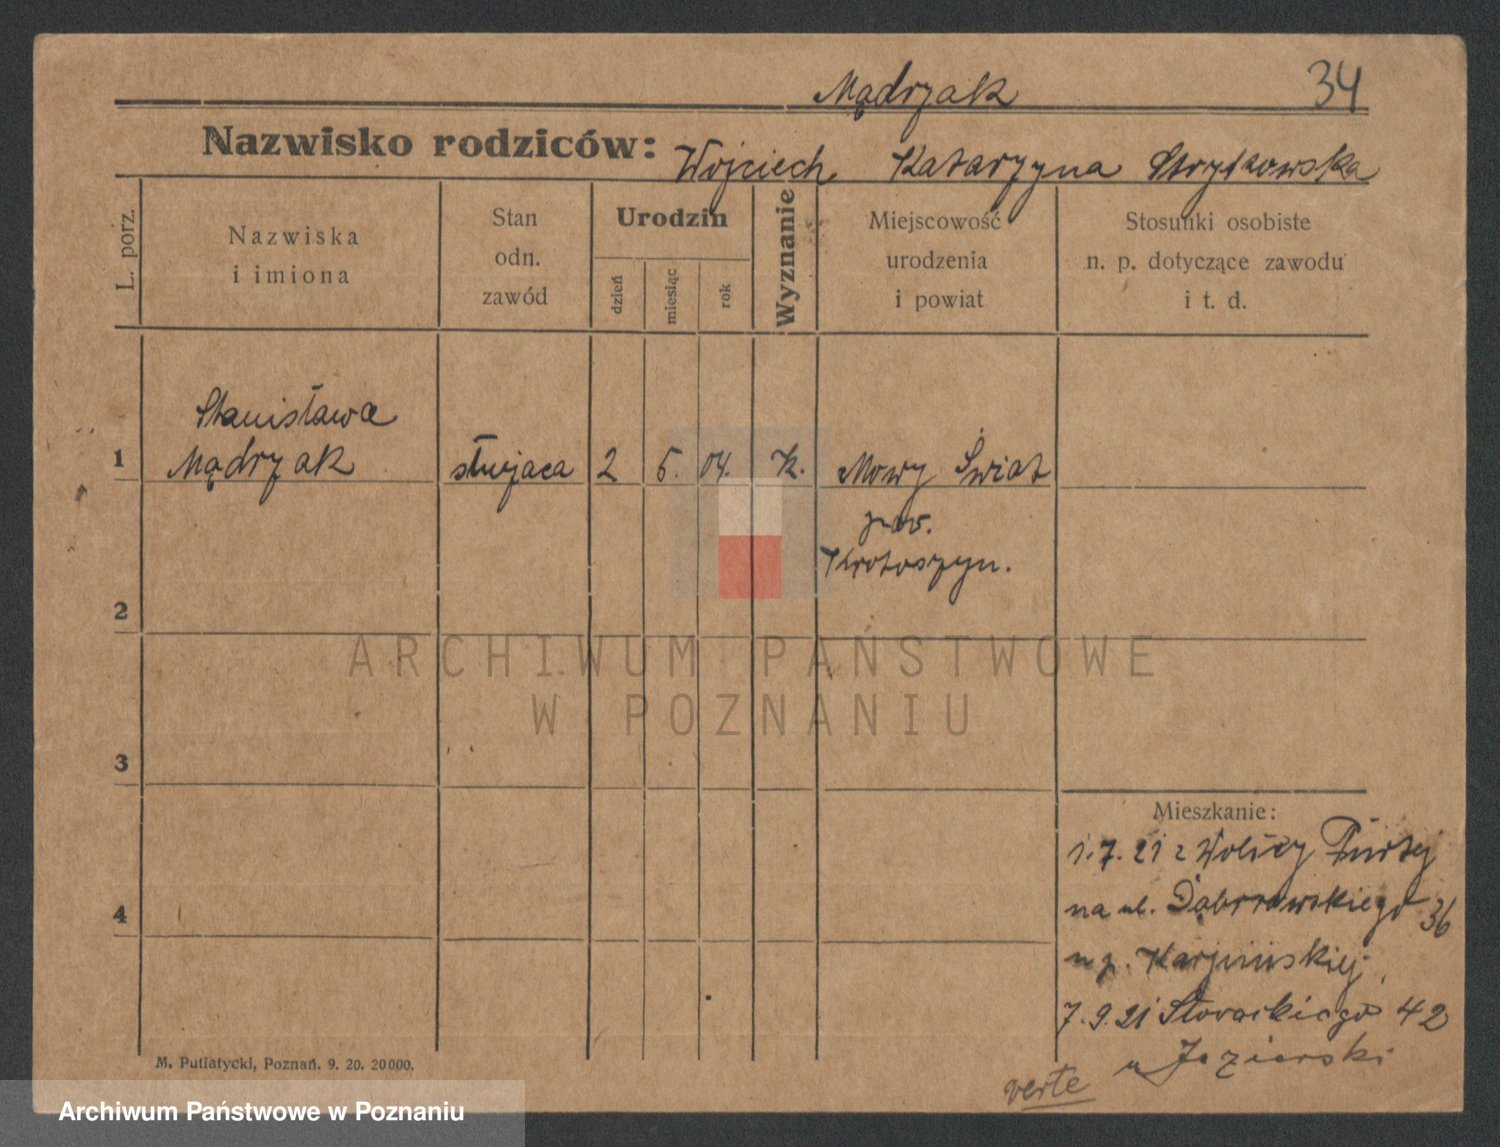 Mądrzak 34
Nazwisko rodziców: Wojciech Katarzyna Strytkowska
L. porz.
Nazwiska
i imiona
Stan
odn.
zawód
Urodzin
dzień
miesiąc
rok
Wyznanie
Miejscowość
urodzenia
i powiat
Stosunki osobiste
n. p. dotyczące zawodu
i t. d.
Stanisława
1 Mądrzak służąca 2 5. 04. K. Nowy Świat
pow.
Krotoszyn.
2
3
4
Mieszkanie:
1.7.21 z
na ul. Dąbrowskiego 36
u p. Karpińskiej
7.9.21 Słowackiego 42
u Jezierski
verte
M. Putiatycki, Poznań. 9. 20. 20000.
ARCHIWUM PAŃSTWOWE
W POZNANIU
Archiwum Państwowe w Poznaniu